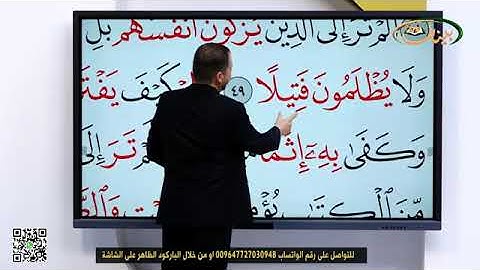 أَلَمْ تَرَ إِلَى الَّذِينَ يُزَكُّونَ أَنْفُسَهُمْ بَلِ
وَلَا يُظْلَمُونَ فَتِيلًا ٤٩ كَيْفَ يَفْتَ
وَكَفَى بِهِ إِثْمًا تَرَ إِلَى
مِّنَ الْكِتَابِ
للتواصل على رقم الواتساب 009647727030948 او من خلال الباركود الظاهر على الشاشة